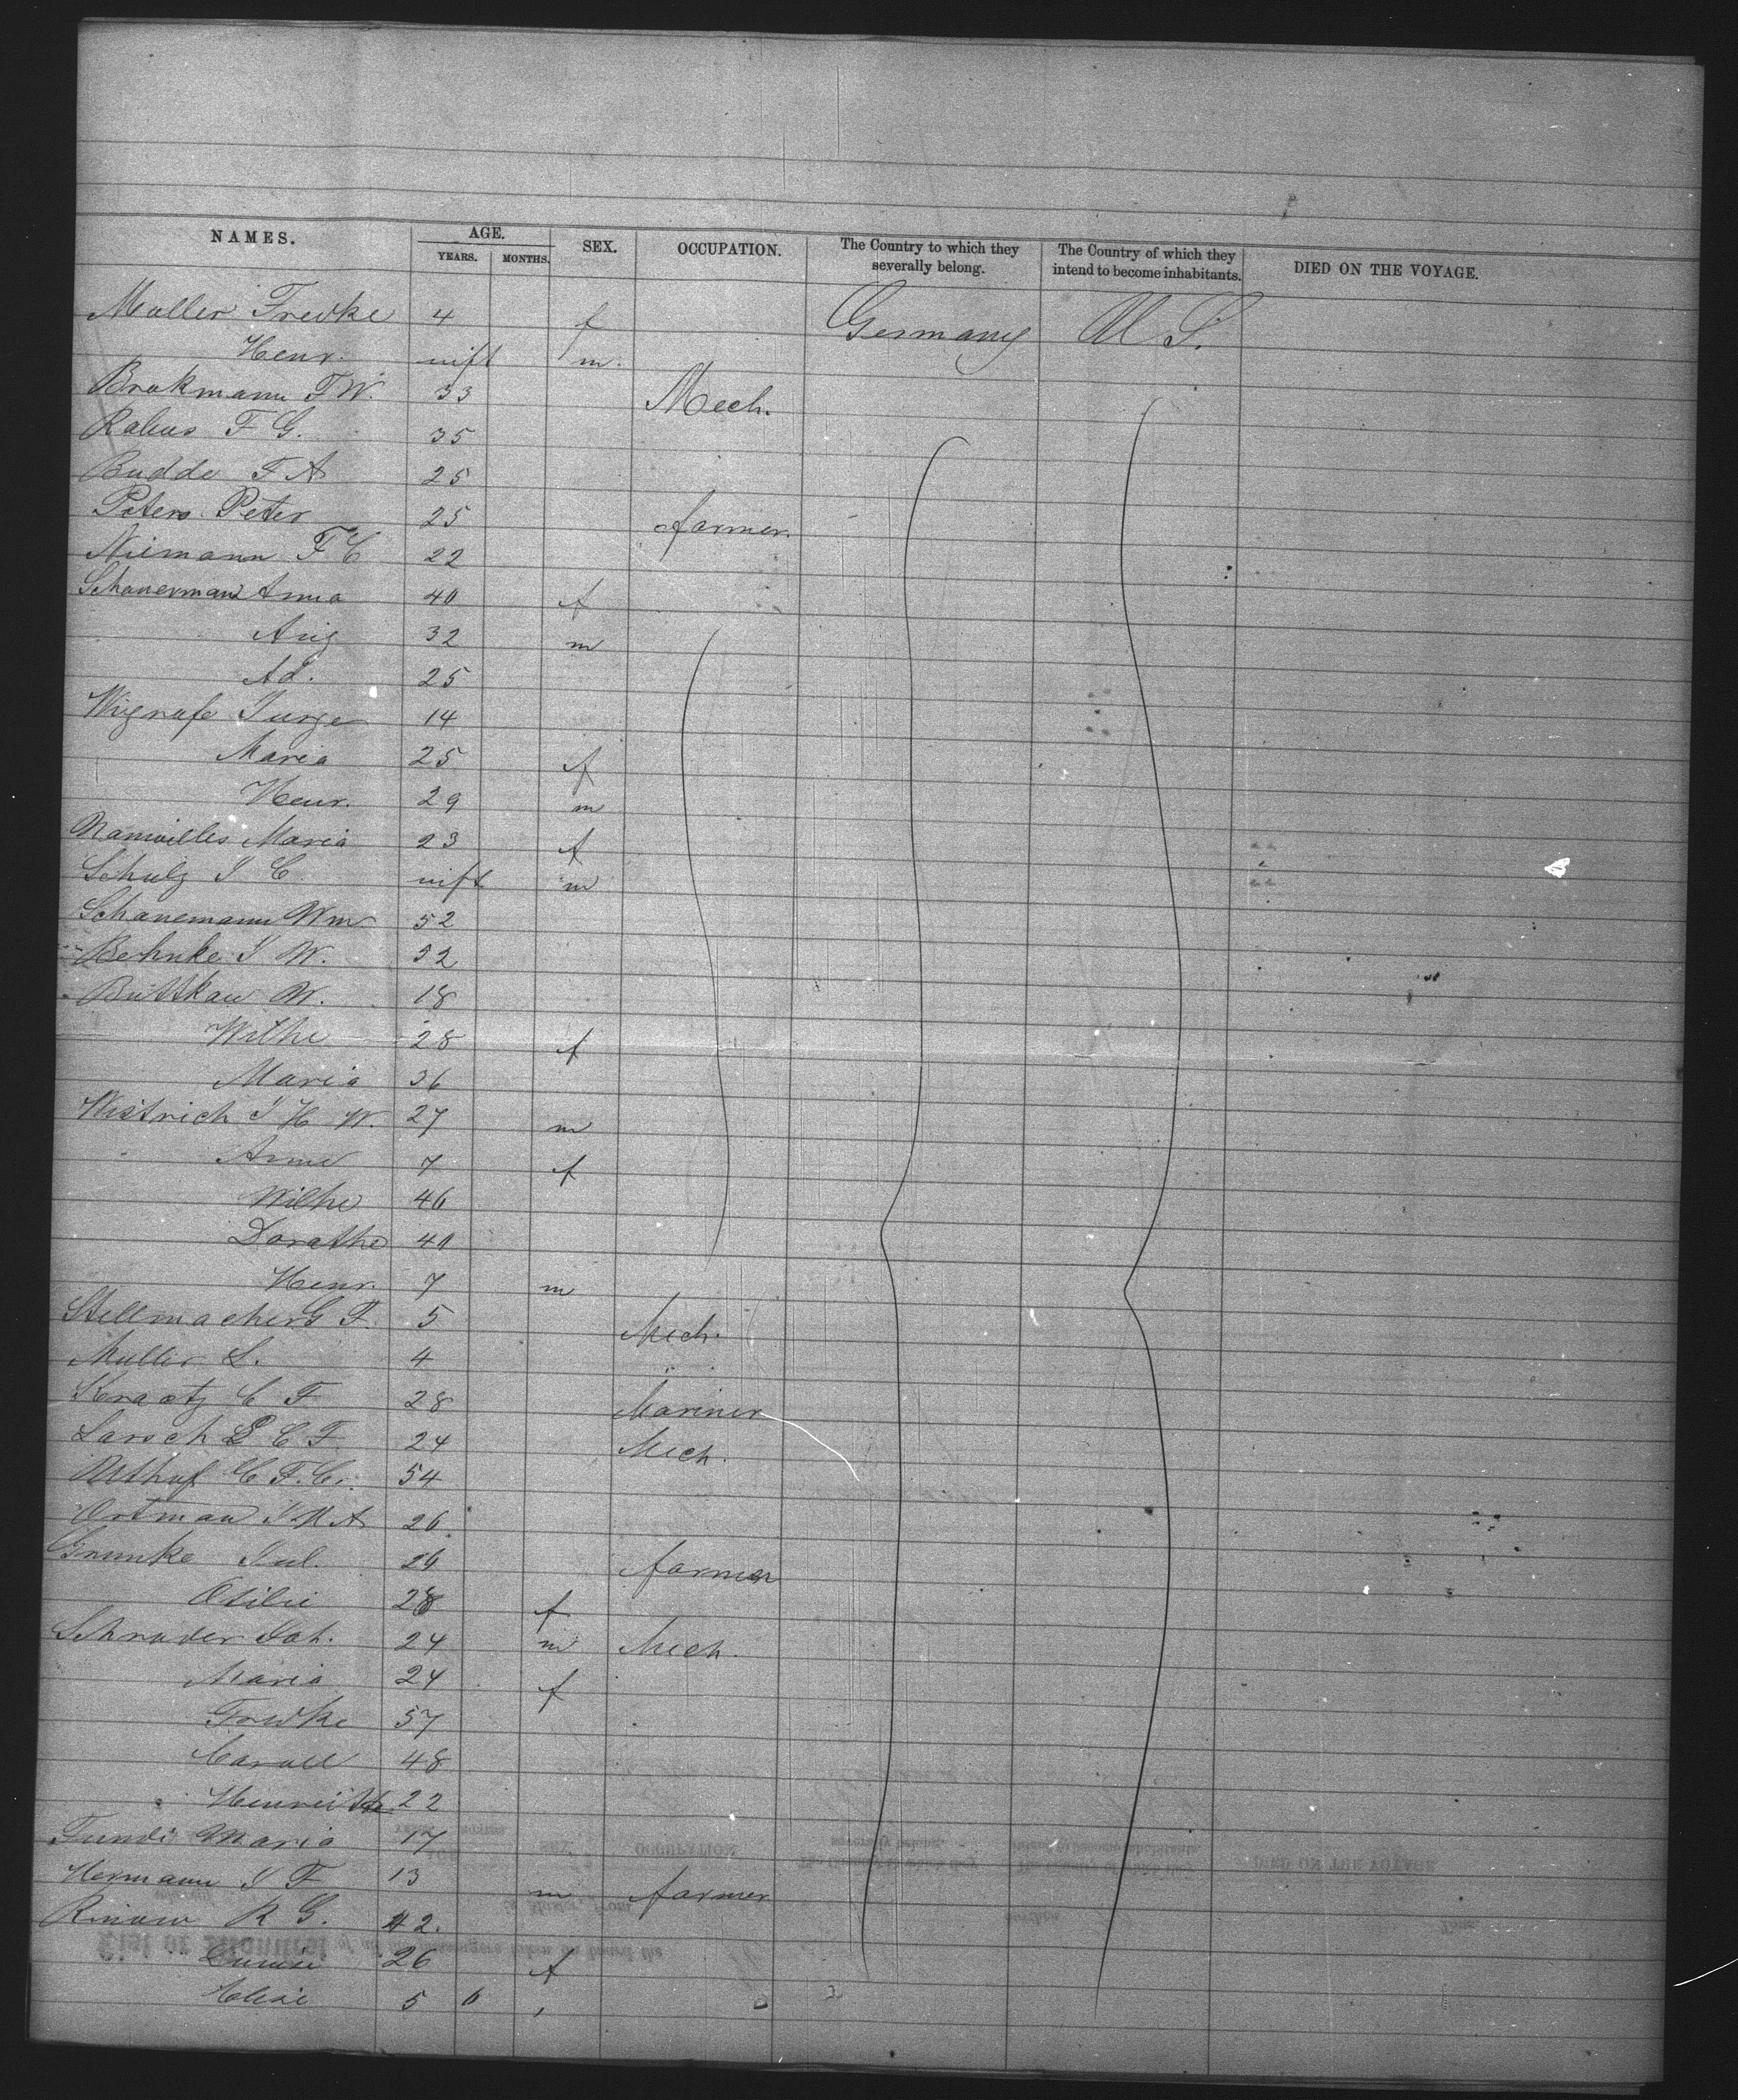 NAMES. AGE. YEARS. MONTHS. SEX. OCCUPATION. The Country to which they severally belong. The Country of which they intend to become inhabitants. DIED ON THE VOYAGE.
Muller Fredke 4 f Germany U S.
Henr. inft m.
Brokmann F W. 33 Mech.
Rabus F G. 35
Budde F A 25
Peters Peter 25 farmer.
Niemann F C 22
Schanerman Anna 40 f
Aug 32 m
Ad. 25
Wignafe Jurge 14
Maria 25 f
Henr. 29 m
Maria 23 f
Schulz J C. inft m
Schanemann Wm 52
Behnke J W. 52
Buttkau W. 18
Wilhe 28 f
Maria 36
Wistrich J H W. 27 m
Anne 7 f
Wilhe 46
Dorathe 40
Henr. 7 m
Stellmacher G F. 5 Mech.
Muller L. 4
Kraatz C F 28 Mariner
Larsch L C F 24 Mech.
Althof C F. C. 54
Ortman J H A 26.
Grunke Jul. 26 farmer
Otilie 28 f
Schrader Joh. 24 m Mech.
Maria 24 f
Fredke 57
Caroll 48
Henreitte 22
Maria 17
Hermann J F 13 m farmer
R G. 42.
Louise 26 f
5 6